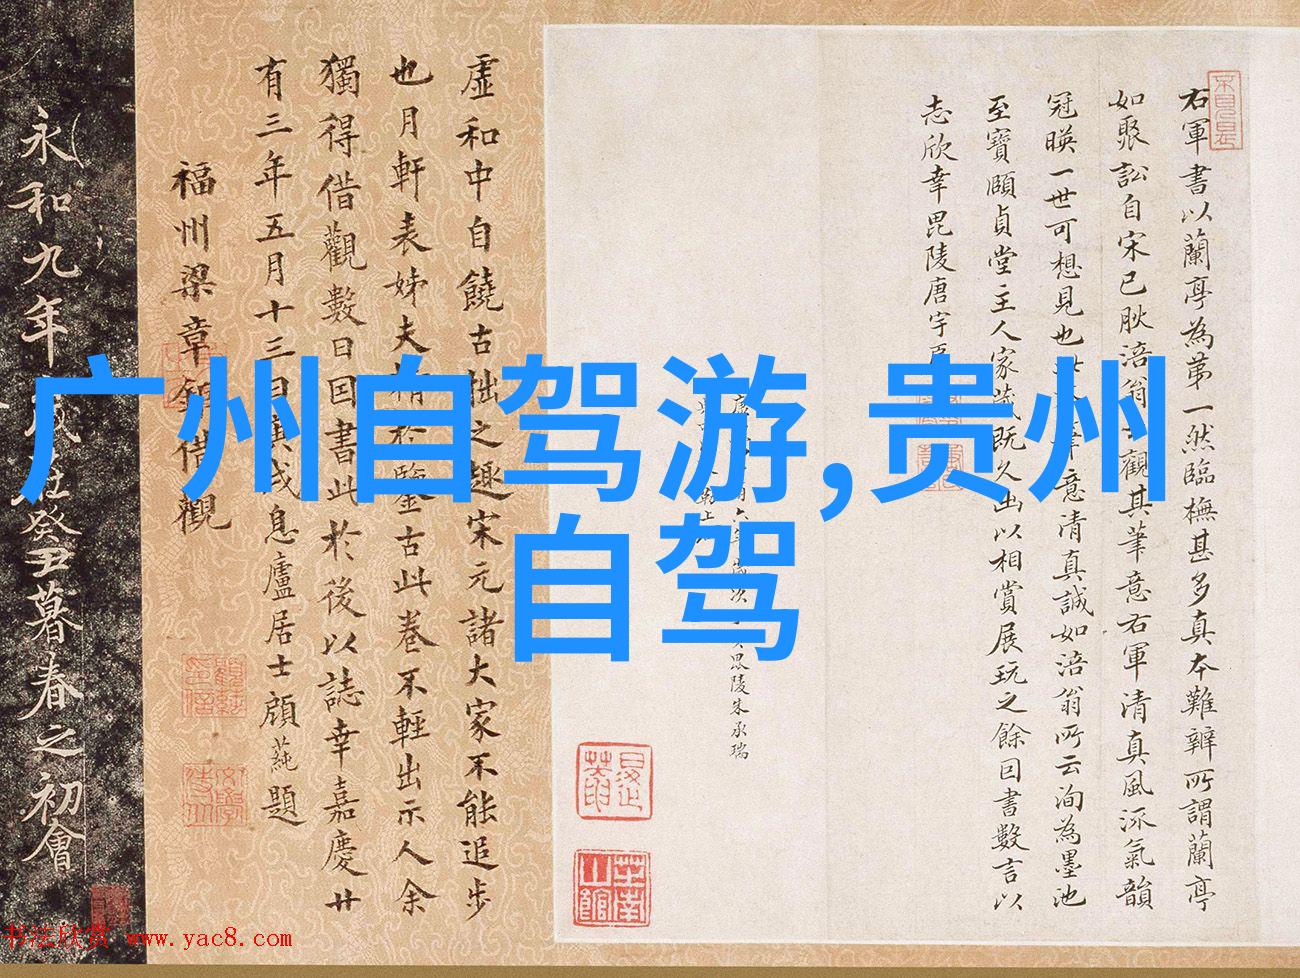 广州自驾游,贵州
自驾
右軍書以蘭亭為第一然臨橅甚多真本難辨所謂蘭亭
如聚訟自宋已肰涪翁觀其筆意右軍清真風流氣韻
冠暎一世可想見也筆意清真誠如涪翁所云洵為墨池
至寶頤貞堂主人家藏既久出以相賞展玩之餘因書數言以
志欣幸毘陵唐宇
毘陵朱承瑞
虛和中自饒古拙之趣宋元諸大家不能追步
也月軒表姊夫精於鑒古此卷不輕出示人余
獨得借觀數日因書此於後以誌幸嘉慶廿
有三年五月十三日庚戌息廬居士顧蒓題
福州梁章鉅借觀
永和九年歲在癸丑暮春之初會
书法欣赏 www.yac8.com